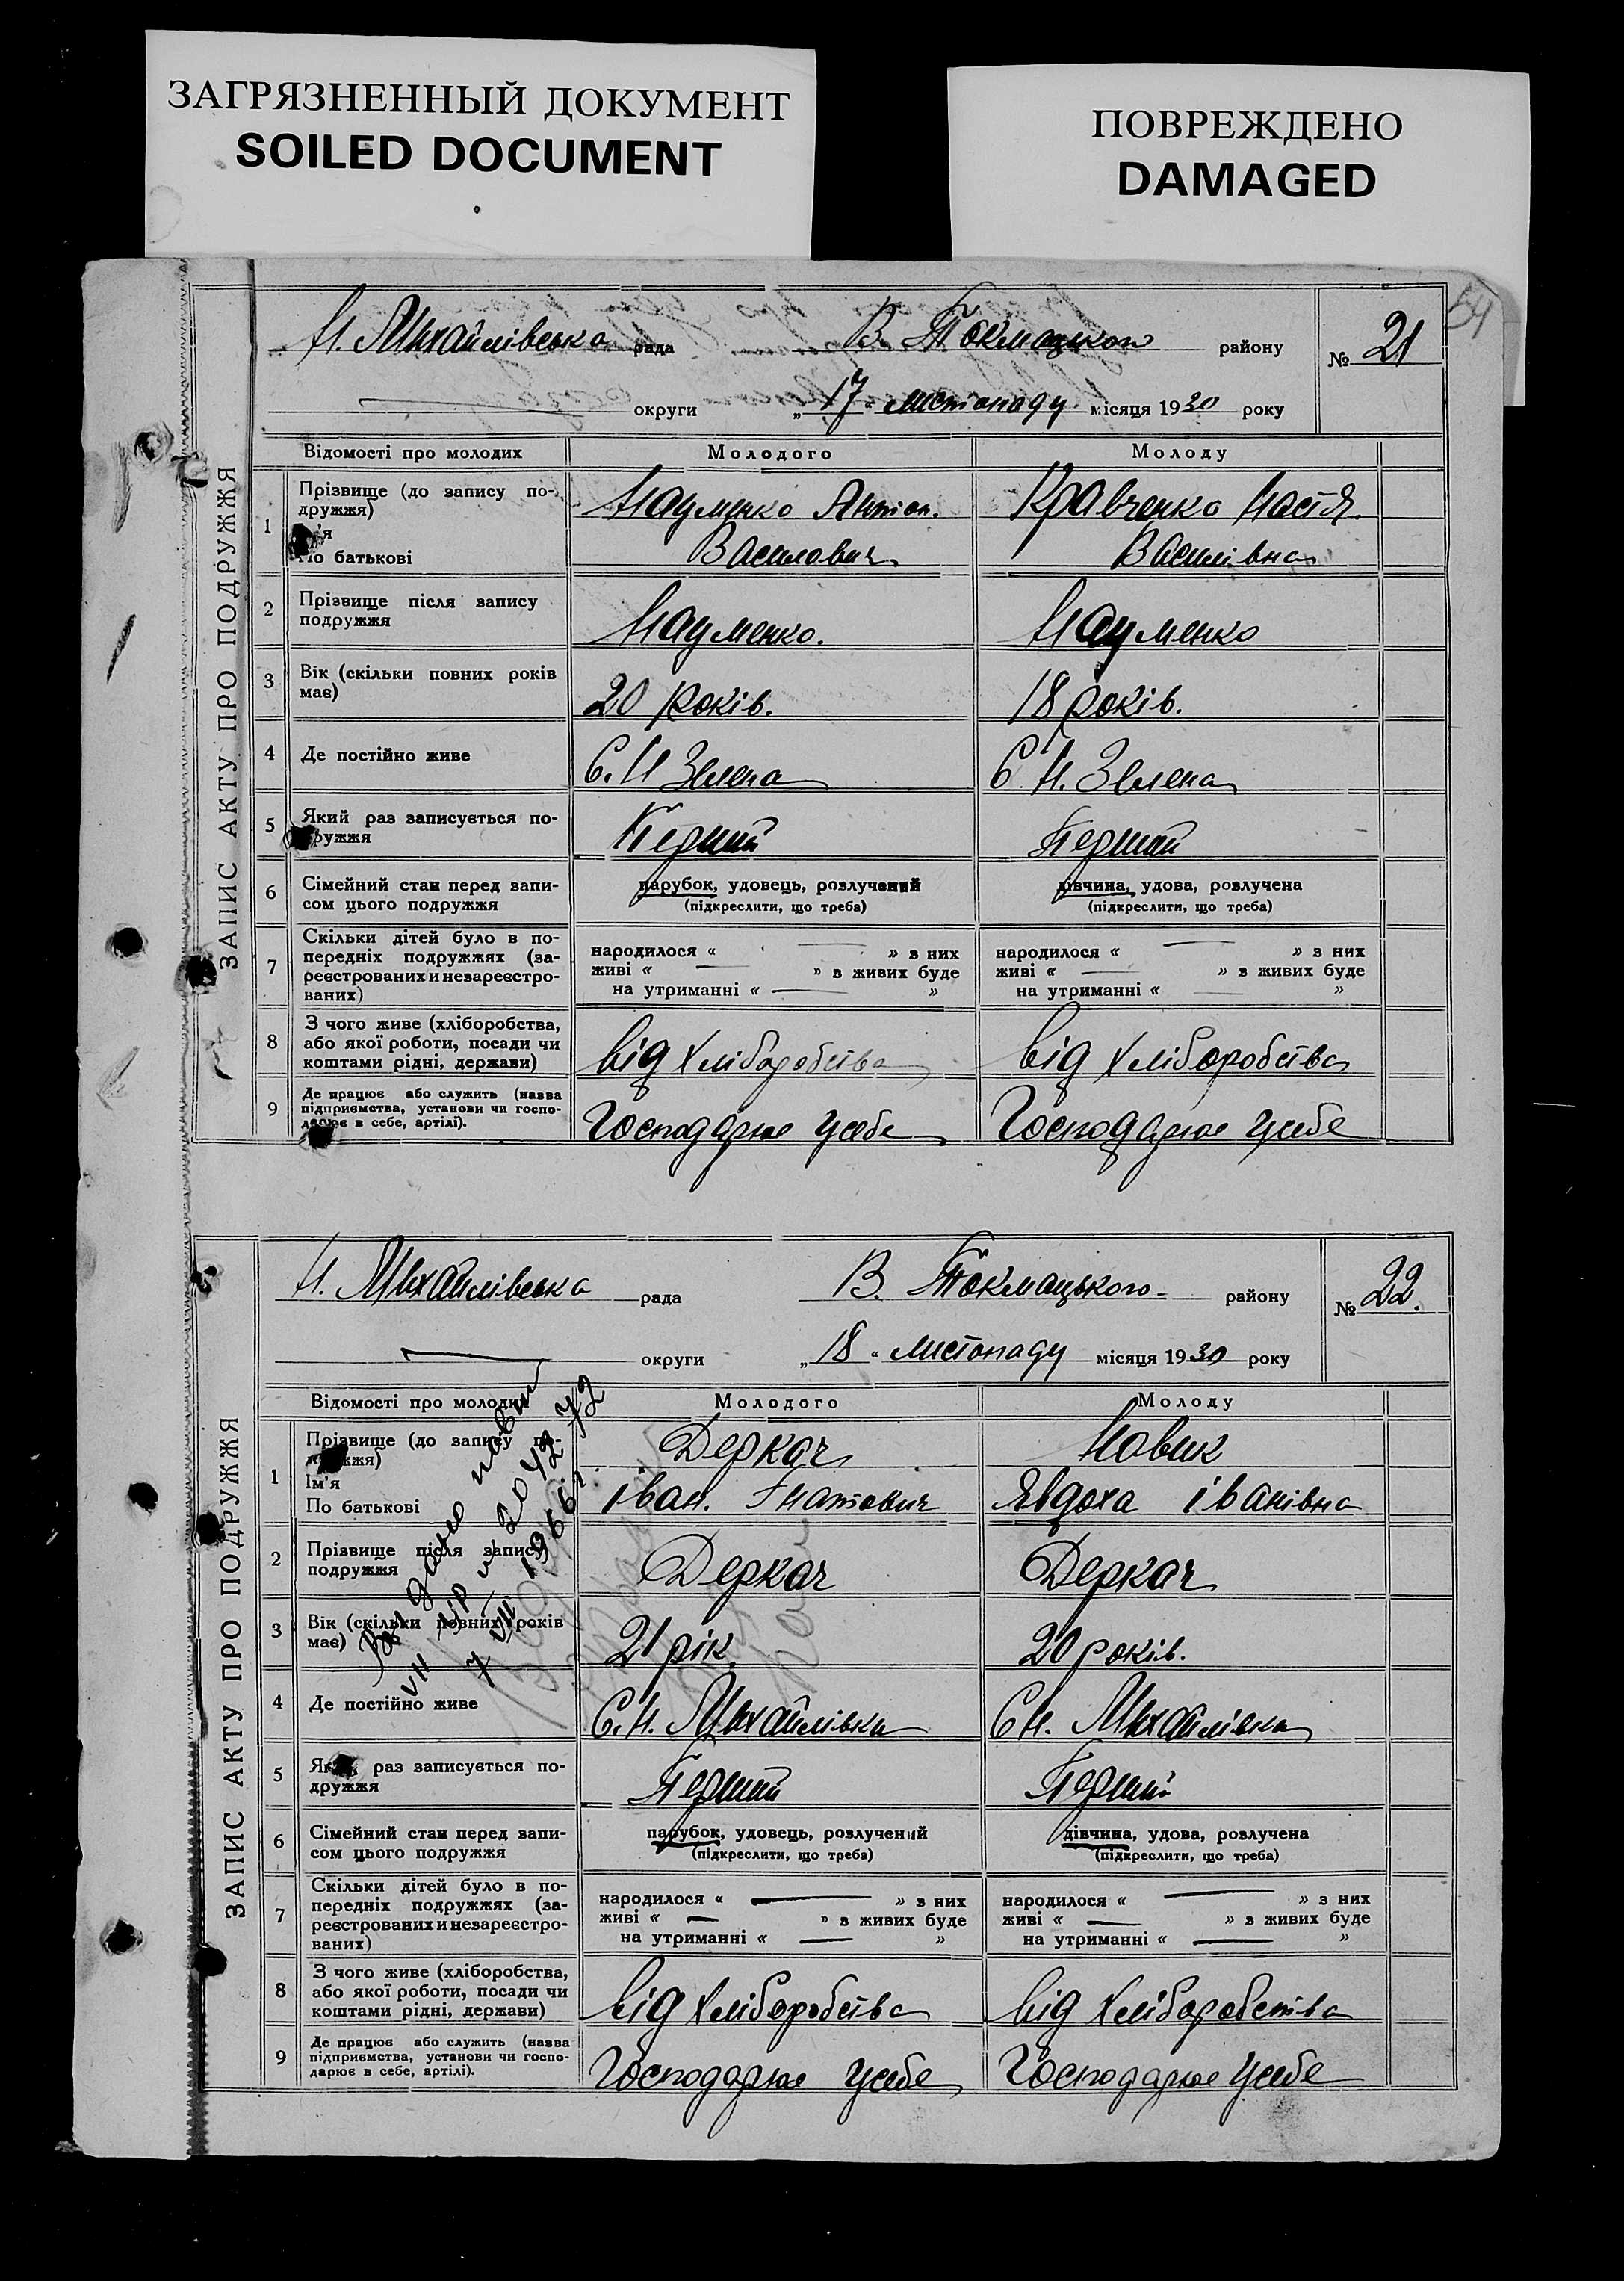 ЗАГРЯЗНЕННЫЙ ДОКУМЕНТ
SOILED DOCUMENT
ПОВРЕЖДЕНО
DAMAGED
54
ЗАПИС АКТУ ПРО ПОДРУЖЖЯ
Н. Михайлівська рада В. Токмацького району № 21
округи „ 17 “ листопаду місяця 1930 року
Відомості про молодих Молодого Молоду
1 Прізвище (до запису по-
дружжя)
Науменко Антон. Кравченко Настя.
По батькові Василович Василівна
2 Прізвище після запису
подружжя Науменко. Науменко
3 Вік (скільки повних років
має) 20 років. 18 років.
4 Де постійно живе С. Н Зелена С. Н. Зелена
5 Який раз записується по-
дружжя Перший Перший
6 Сімейний стан перед запи-
сом цього подружжя
парубок, удовець, розлучений дівчина, удова, розлучена
(підкреслити, що треба) (підкреслити, що треба)
7 Скільки дітей було в по-
передніх подружжях (за-
реєстрованих и незареєстро-
ваних)
народилося « — » з них народилося « — » з них
живі « — » з живих буде живі « — » з живих буде
на утриманні « — » на утриманні « — »
8 З чого живе (хліборобства,
або якої роботи, посади чи
коштами рідні, держави)
від хліборобства від хліборобства
9 Де працює або служить (назва
підприємства, установи чи госпо-
дарює в себе, артілі).
Господарює усебе Господарює усебе
ЗАПИС АКТУ ПРО ПОДРУЖЖЯ
Н. Михайлівська рада В. Токмацького району № 22.
округи „ 18 “ листопаду місяця 1930 року
Відомості про молодих Молодого Молоду
1 Прізвище (до запису по-
дружжя) Деркач Новик
Ім'я
По батькові іван. Гнатович Явдоха іванівна
2 Прізвище після запису
подружжя Деркач Деркач
3 Вік (скільки повних років
має) 21 рік. 20 років.
4 Де постійно живе С. Н. Михайлівка С Н. Михайлівка
5 Який раз записується по-
дружжя Перший Перший
6 Сімейний стан перед запи-
сом цього подружжя
парубок, удовець, розлучений дівчина, удова, розлучена
(підкреслити, що треба) (підкреслити, що треба)
7 Скільки дітей було в по-
передніх подружжях (за-
реєстрованих и незареєстро-
ваних)
народилося « — » з них народилося « — » з них
живі « — » з живих буде живі « — » з живих буде
на утриманні « — » на утриманні « — »
8 З чого живе (хліборобства,
або якої роботи, посади чи
коштами рідні, держави)
від хліборобства від хліборобства
9 Де працює або служить (назва
підприємства, установи чи госпо-
дарює в себе, артілі).
Господарює усебе Господарює усебе
Видано повт
7 VII 1966 г.